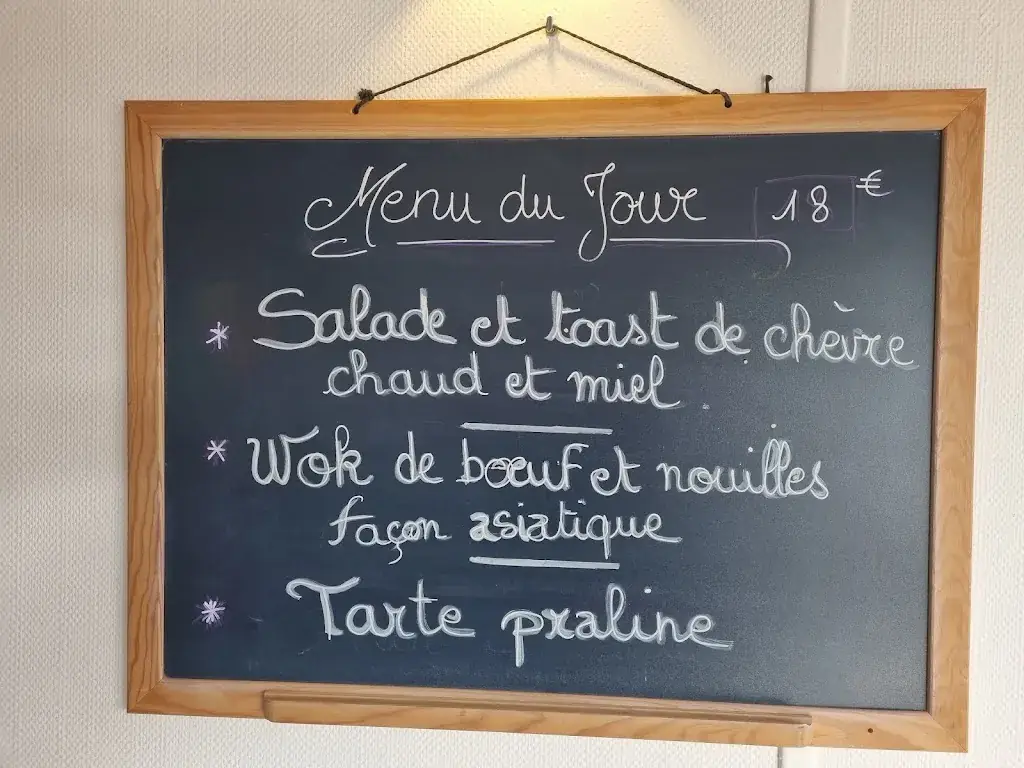 Menu du Jour 18 €
* Salade et toast de chèvre
chaud et miel
* Wok de bœuf et nouilles
façon asiatique
* Tarte praline